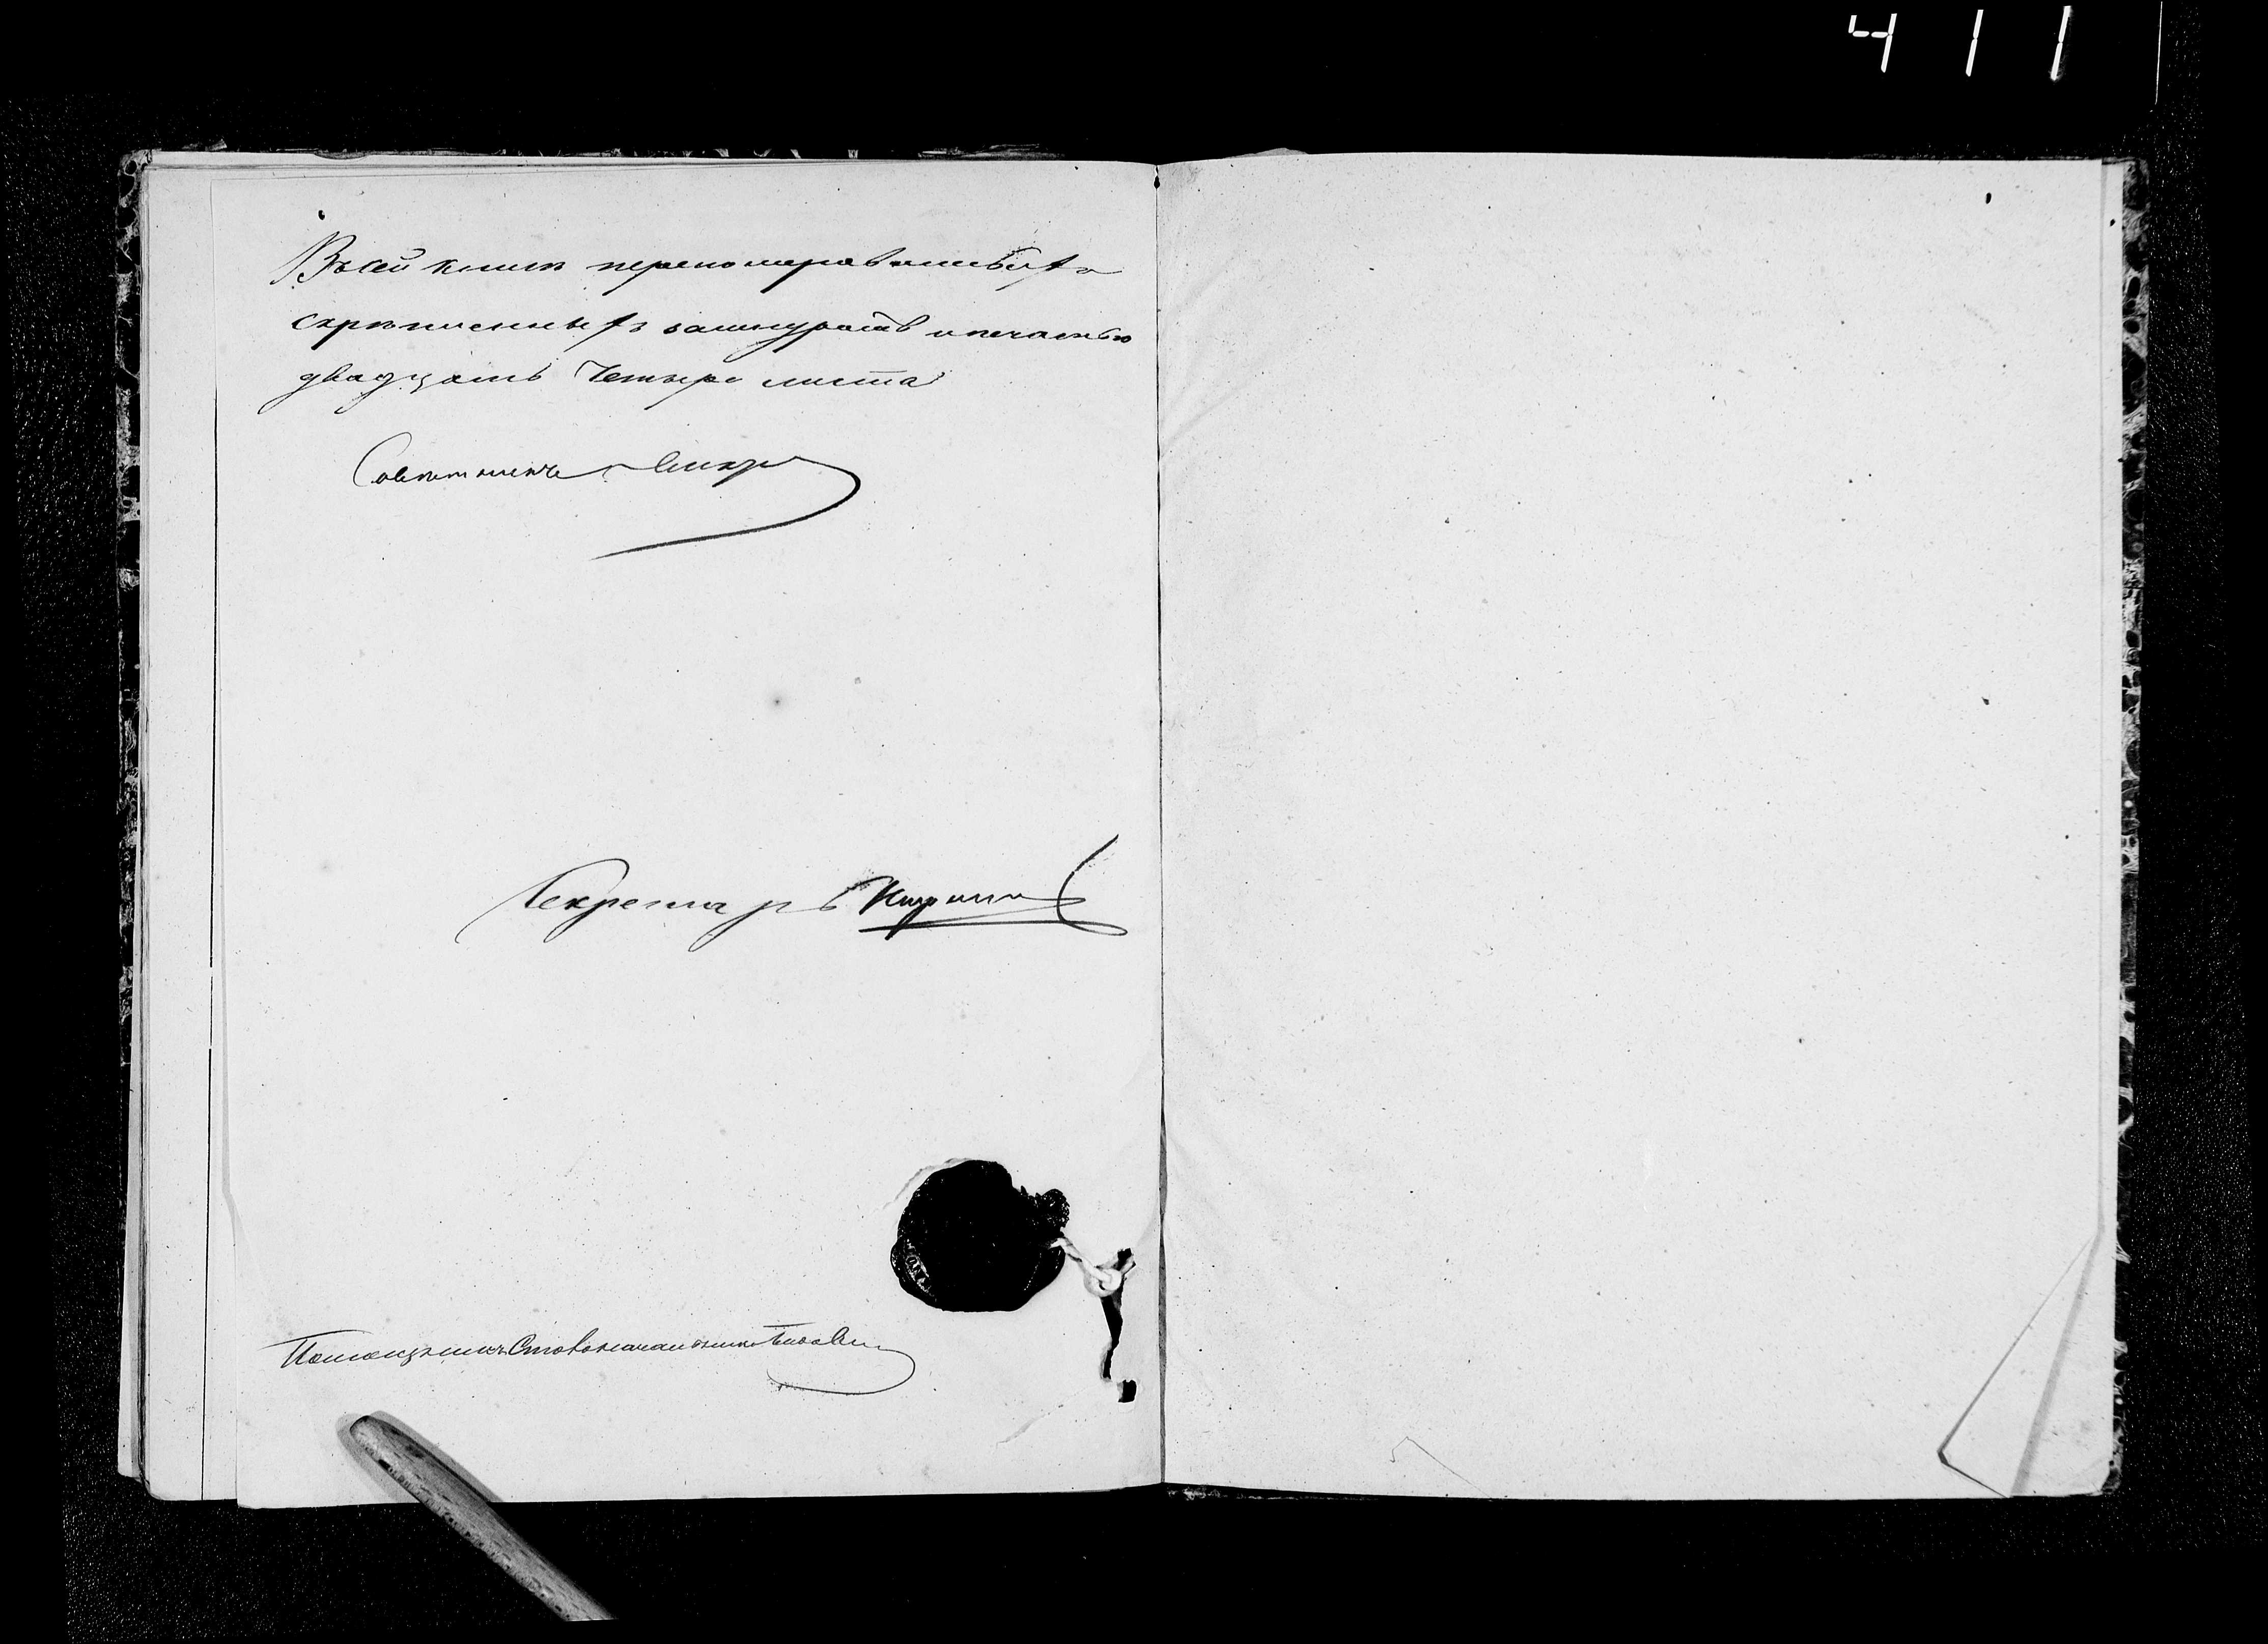 411
Въ сей книгѣ перенумерованныхъ
скрѣпленныхъ за шнуромъ и печатью
двадцать Четыре листа
Совѣтникъ
Секретарь
Помощникъ Столоначальника